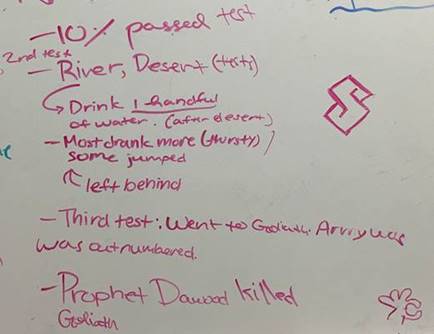 -10% passed test
2nd test
- River, Desert (tests)
Drink 1 handful
of water. (after desert)
- Most drank more (thirsty)
some jumped
left behind
- Third test: Went to Goliath. Army was
was outnumbered.
- Prophet Dawood killed
Goliath